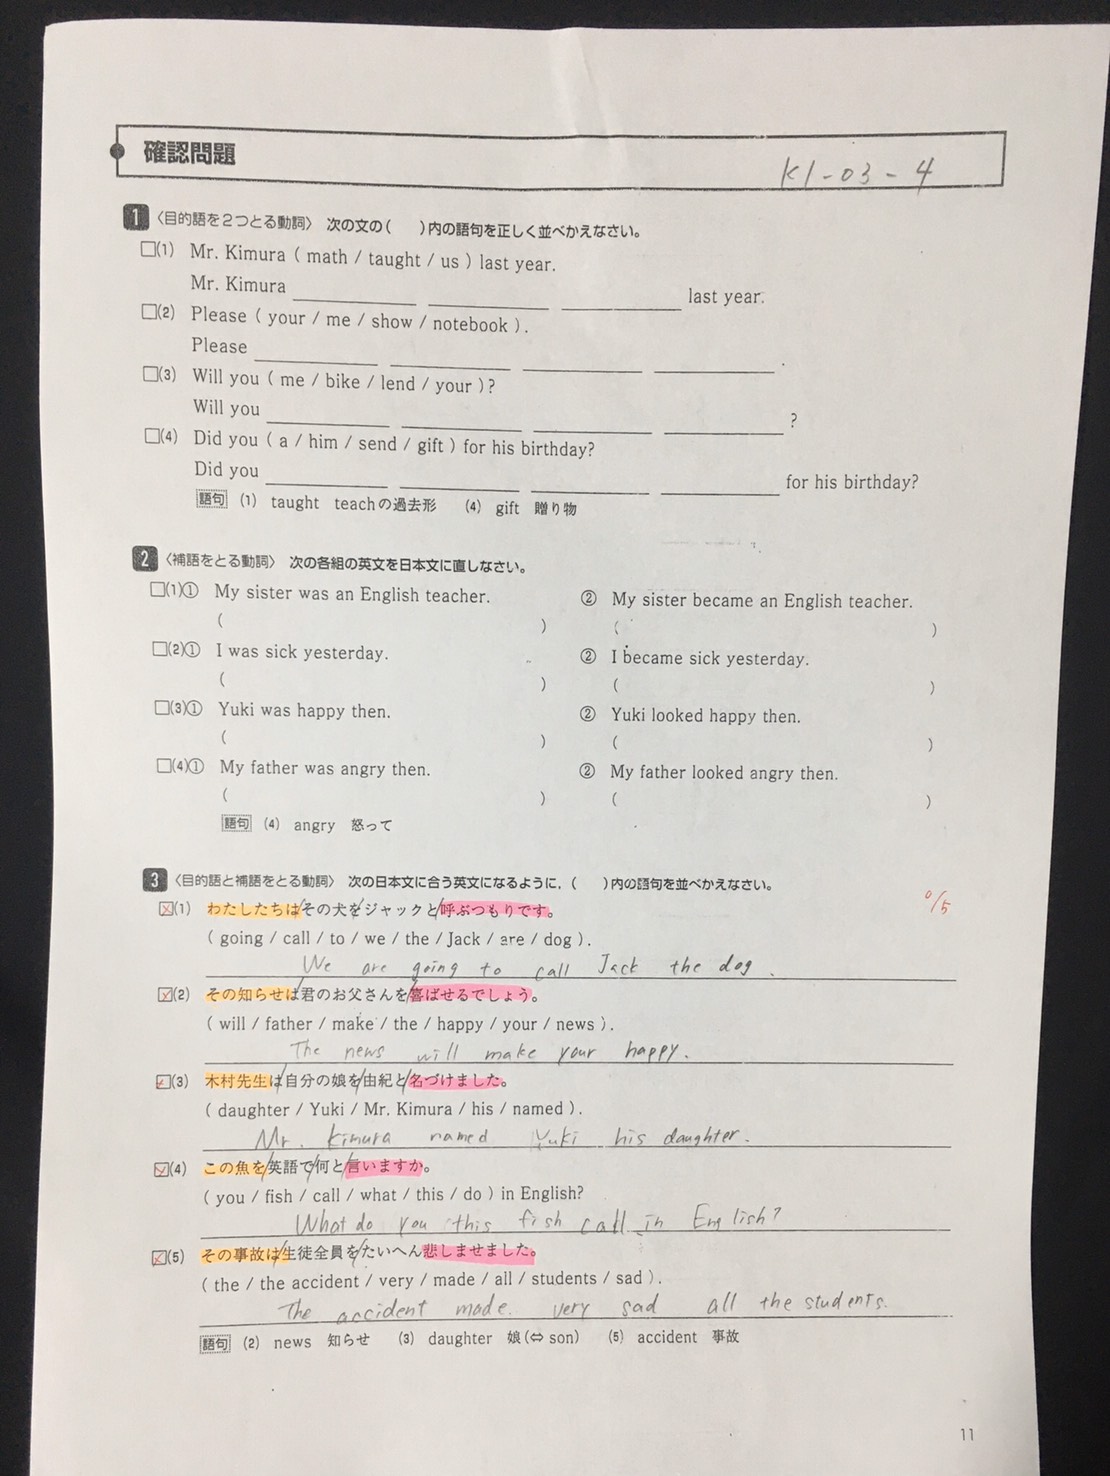 確認問題
K1-03-4
1 〈目的語を2つとる動詞〉 次の文の(　)内の語句を正しく並べかえなさい。
□(1) Mr. Kimura ( math / taught / us ) last year.
Mr. Kimura ______ ______ ______ last year.
□(2) Please ( your / me / show / notebook ).
Please ______ ______ ______ ______ .
□(3) Will you ( me / bike / lend / your )?
Will you ______ ______ ______ ______ ?
□(4) Did you ( a / him / send / gift ) for his birthday?
Did you ______ ______ ______ ______ for his birthday?
語句 (1) taught teachの過去形 (4) gift 贈り物
2 〈補語をとる動詞〉 次の各組の英文を日本文に直しなさい。
□(1)① My sister was an English teacher. ② My sister became an English teacher.
(　) (　)
□(2)① I was sick yesterday. ② I became sick yesterday.
(　) (　)
□(3)① Yuki was happy then. ② Yuki looked happy then.
(　) (　)
□(4)① My father was angry then. ② My father looked angry then.
(　) (　)
語句 (4) angry 怒って
3 〈目的語と補語をとる動詞〉 次の日本文に合う英文になるように，(　)内の語句を並べかえなさい。
0/5
□(1) わたしたちは/その犬を/ジャックと/呼ぶつもりです。
( going / call / to / we / the / Jack / are / dog ).
We are going to call Jack the dog.
□(2) その知らせは/君のお父さんを/喜ばせるでしょう。
( will / father / make / the / happy / your / news ).
The news will make your happy.
□(3) 木村先生は/自分の娘を/由紀と/名づけました。
( daughter / Yuki / Mr. Kimura / his / named ).
Mr. Kimura named Yuki his daughter.
□(4) この魚を/英語で/何と/言いますか。
( you / fish / call / what / this / do ) in English?
What do you this fish call in English?
□(5) その事故は/生徒全員を/たいへん悲しませました。
( the / the accident / very / made / all / students / sad ).
The accident made very sad all the students.
語句 (2) news 知らせ (3) daughter 娘(⇔son) (5) accident 事故
11